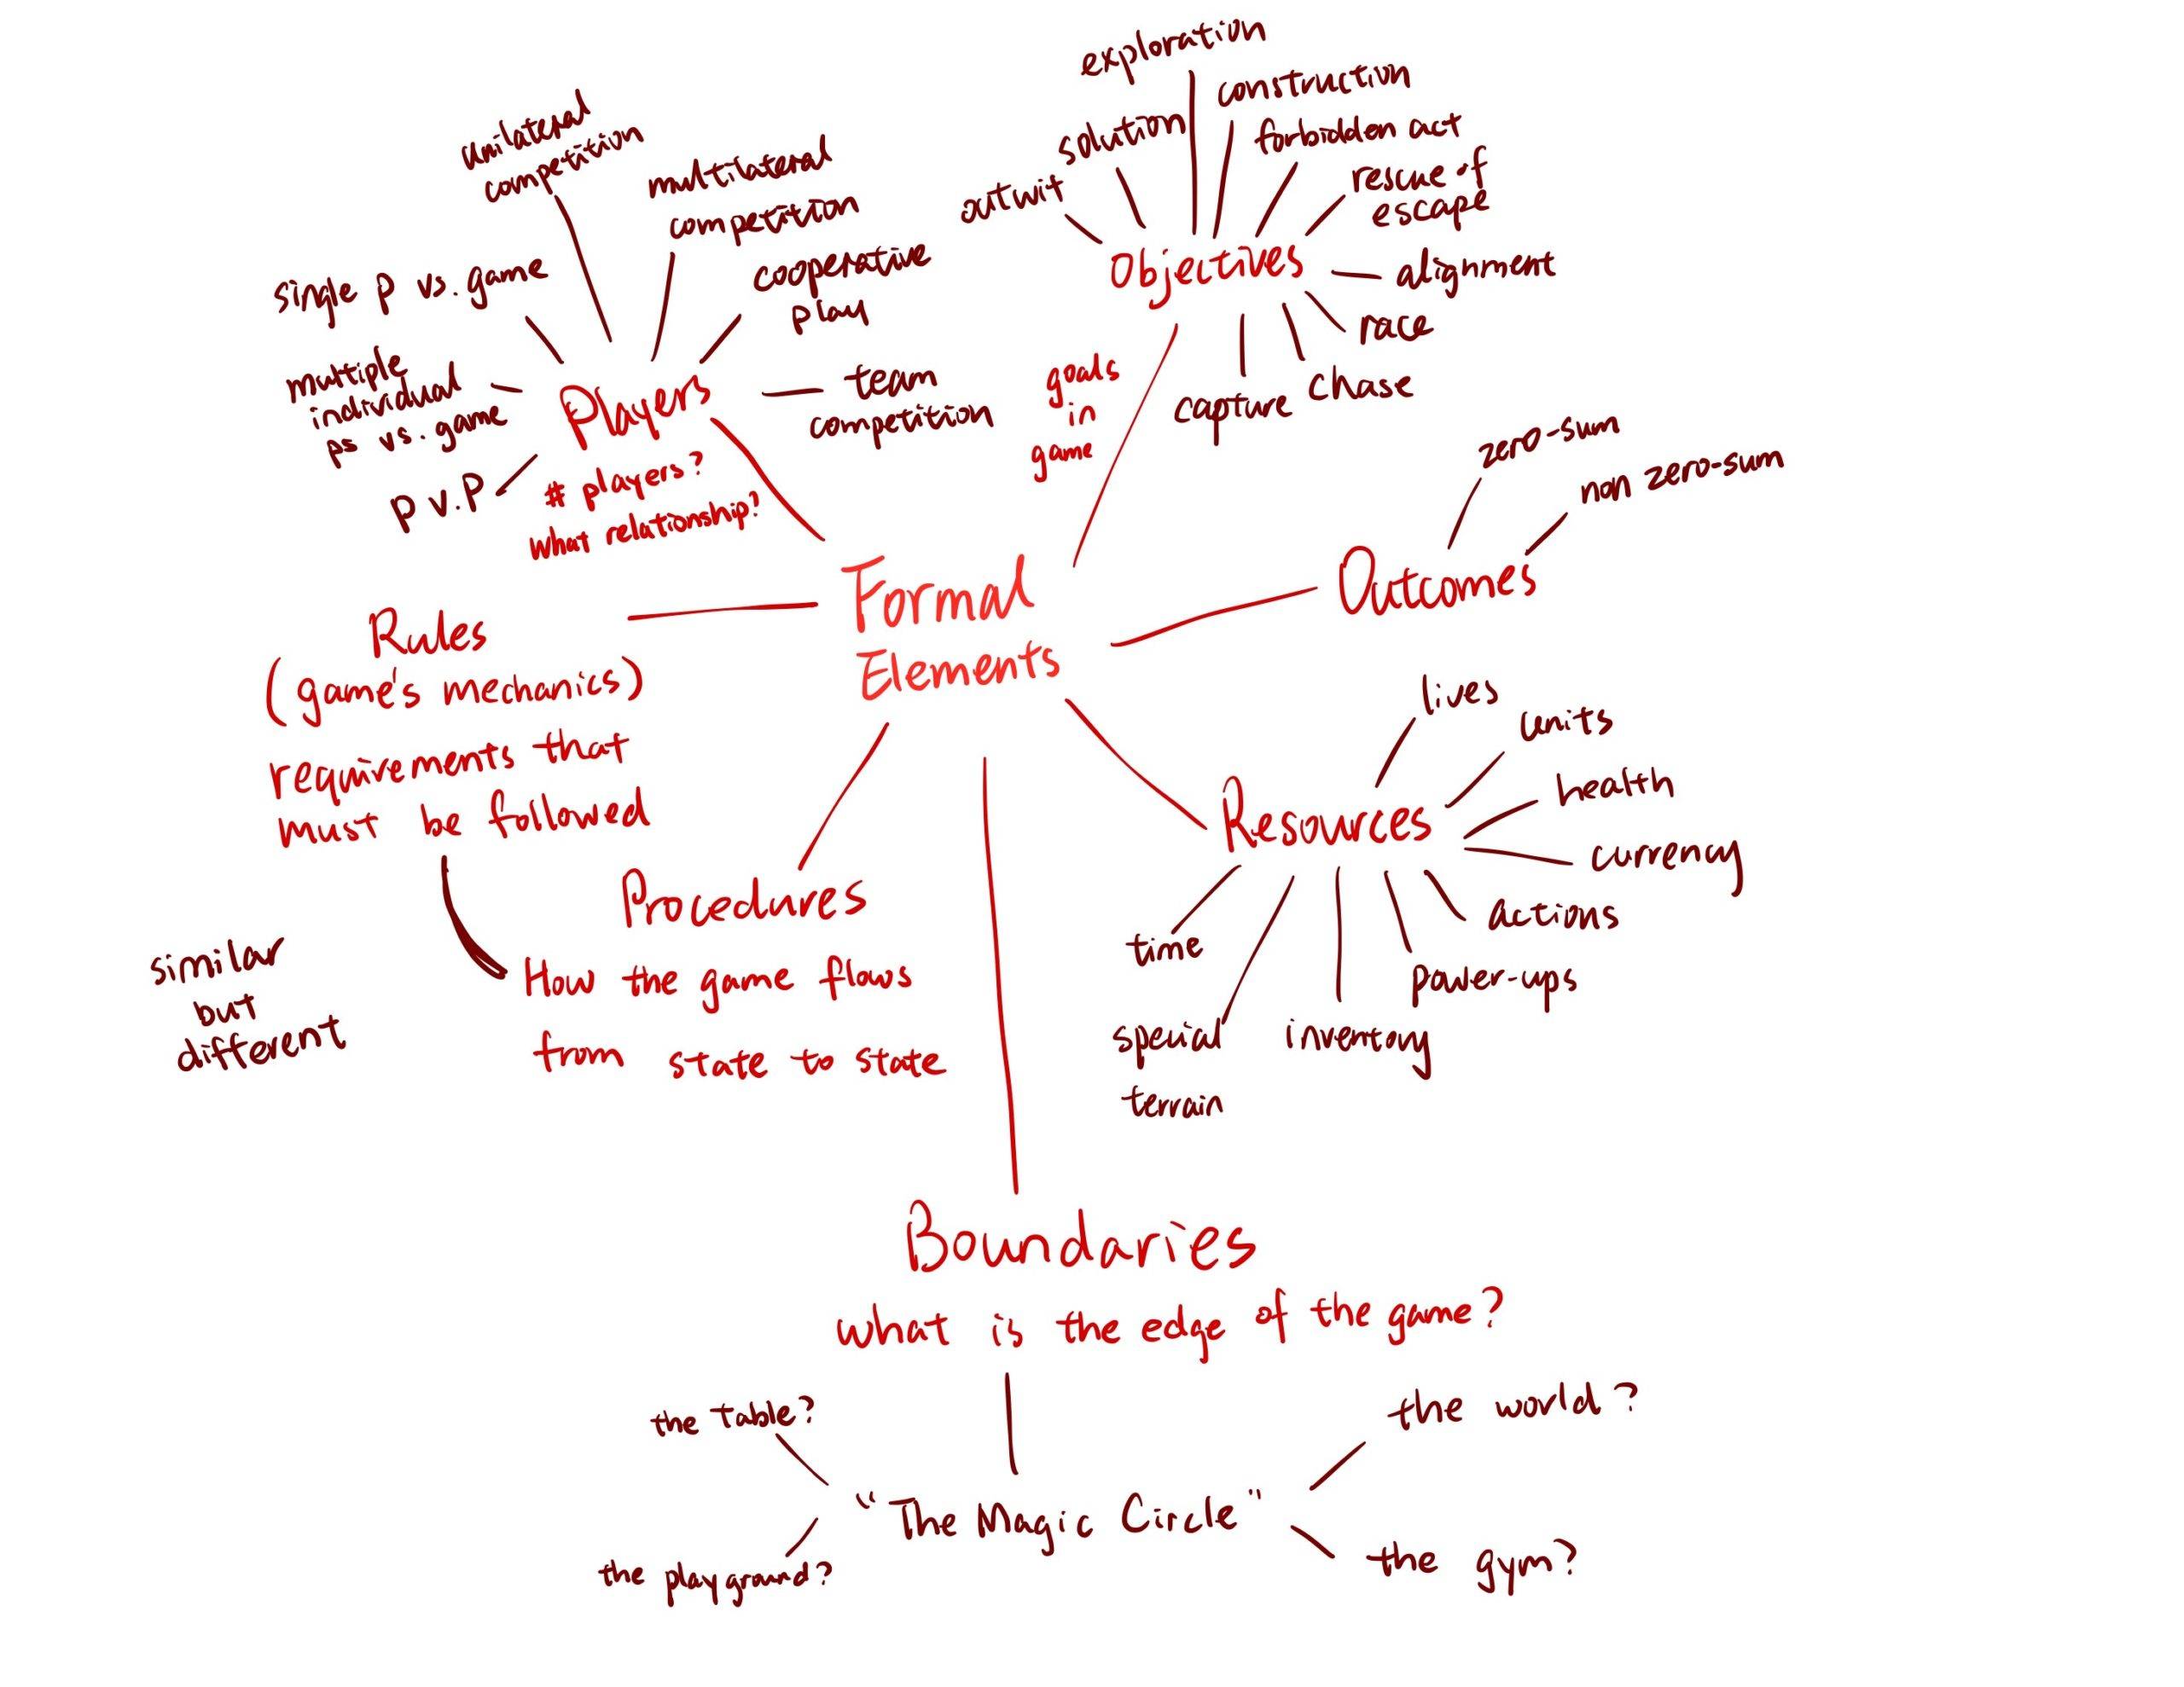 exploration
construction
solution
forbidden act
outwit
rescue of
escape
Objectives
alignment
race
chase
capture
goals
in
game
unilateral
competition
multilateral
competition
cooperative
play
single p vs. game
multiple
individual
ps vs. game
Players
team
competition
p v. p
# players?
what relationship?
zero-sum
non zero-sum
Outcomes
Formal
Elements
Rules
(game's mechanics)
requirements that
must be followed
similar
but
different
Procedures
How the game flows
from state to state
lives
units
health
Resources
currency
actions
power-ups
time
special
terrain
inventory
Boundaries
what is the edge of the game?
the table?
the world?
"The Magic Circle"
the playground?
the gym?